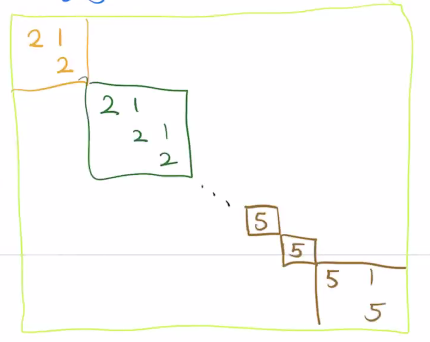 2 1
2
2 1
2 1
2
5
5
5 1
5